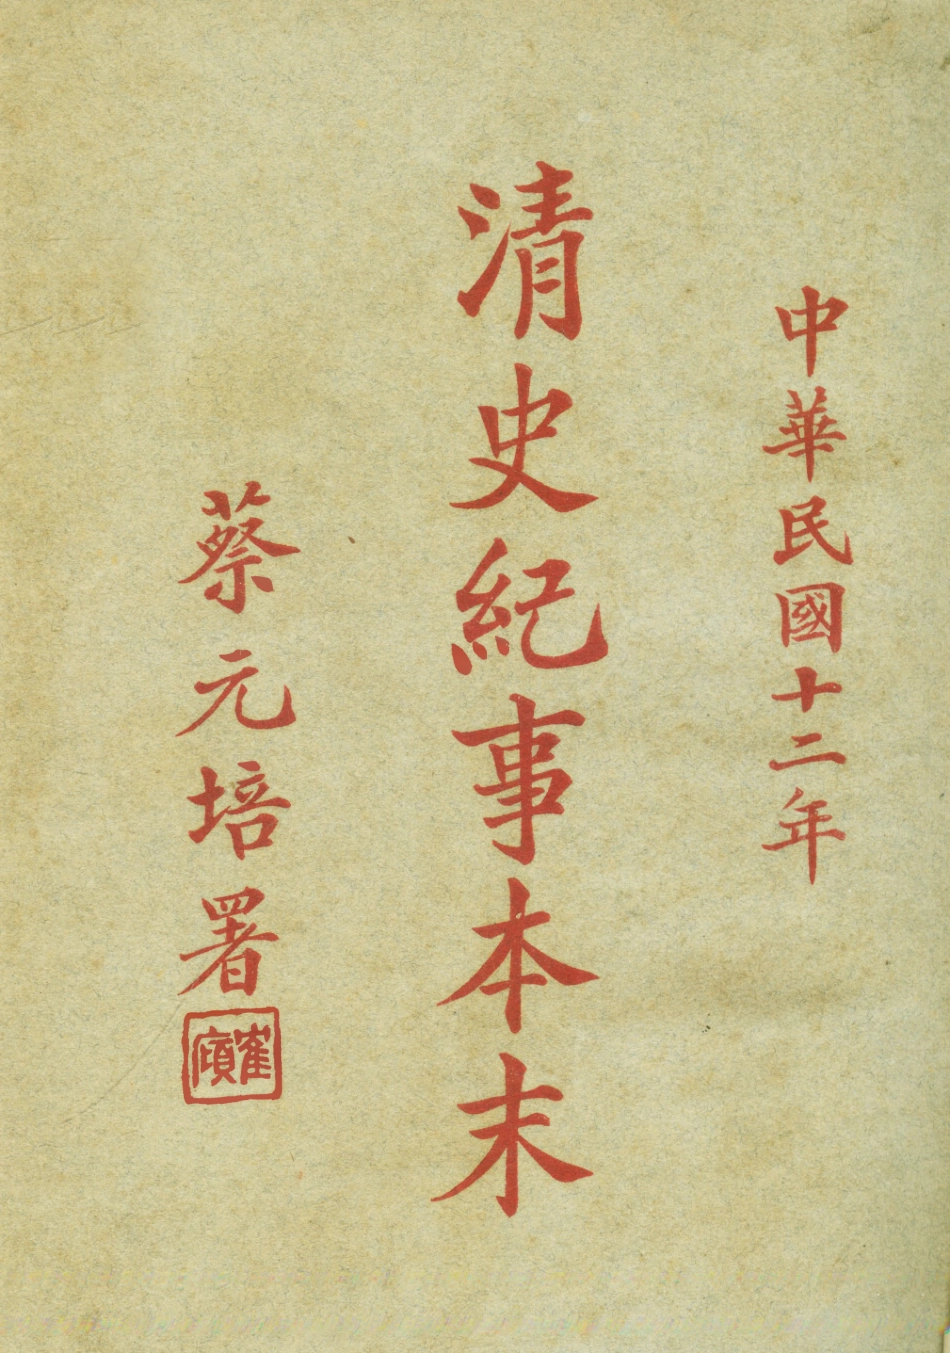 中華民國十二年
清史紀事本末
蔡元培署